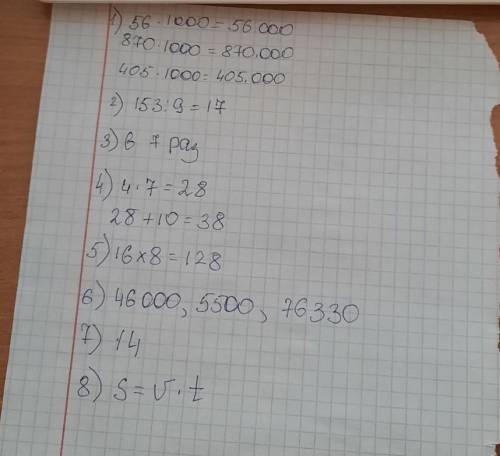 1) 56 · 1000 = 56.000
870 · 1000 = 870.000
405 · 1000 = 405.000
2) 153 : 9 = 17
3) в 7 раз
4) 4 · 7 = 28
28 + 10 = 38
5) 16 × 8 = 128
6) 46000, 5500, 76330
7) 14
8) S = V · t